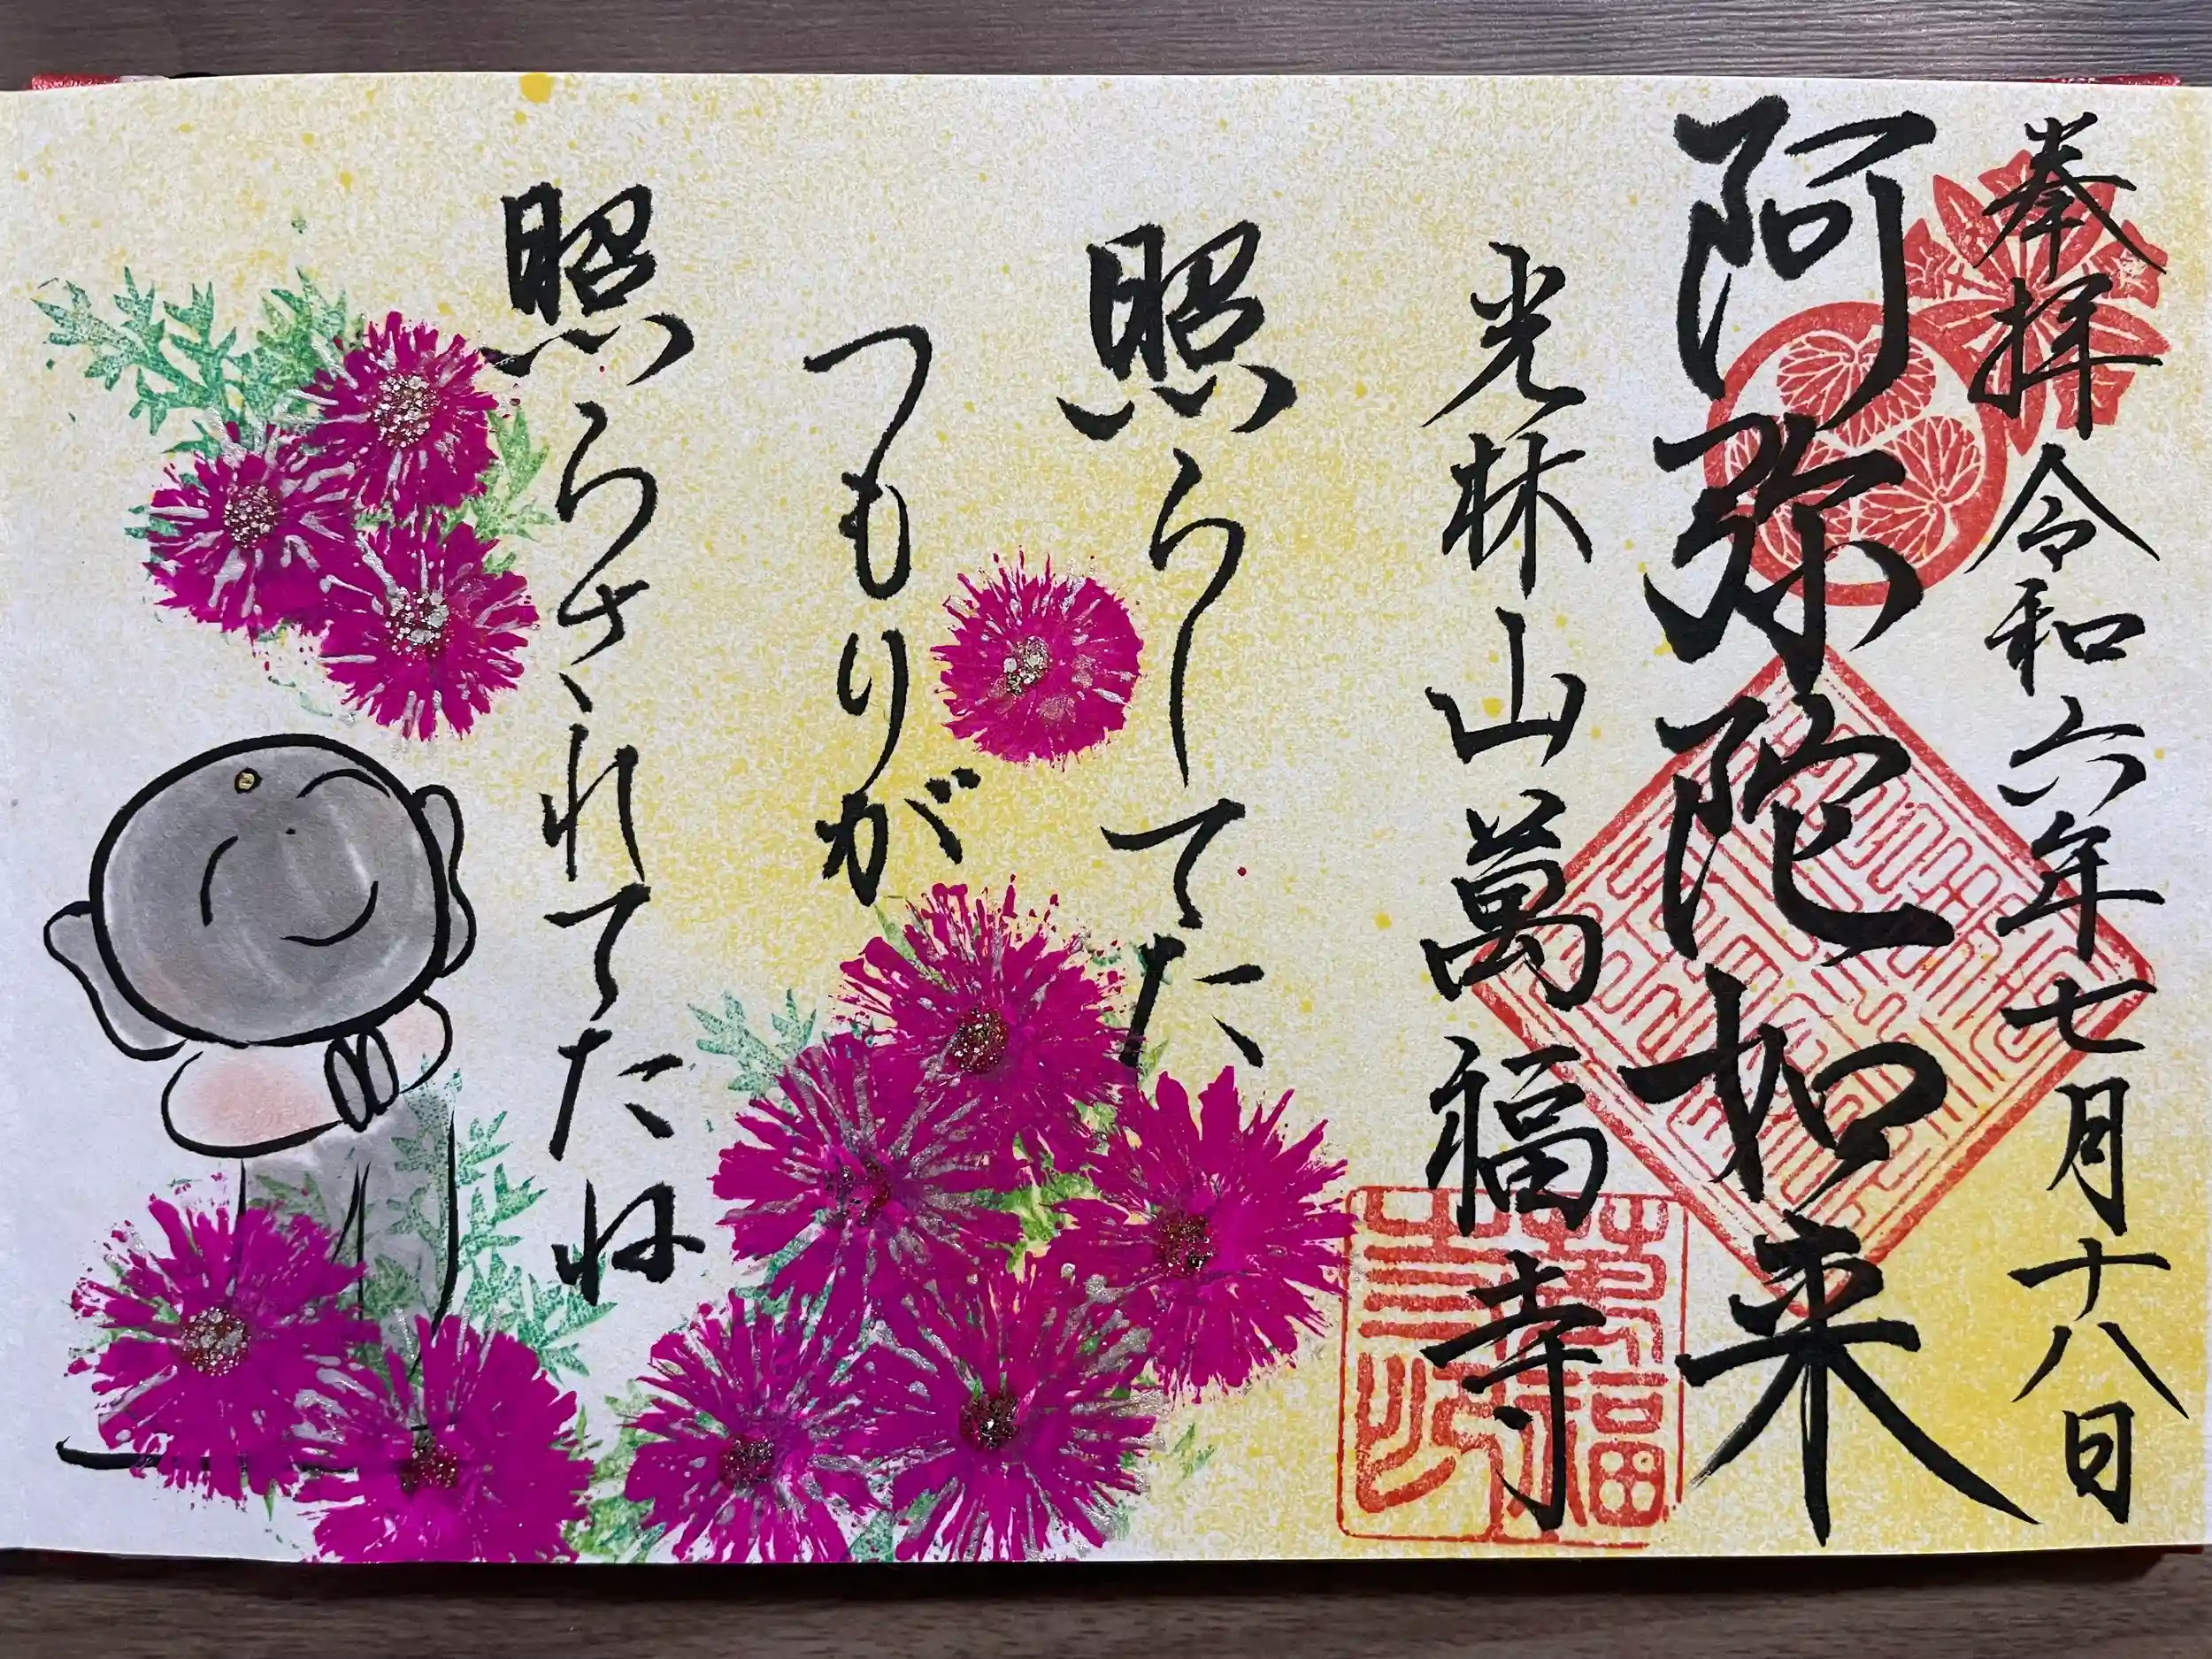 奉拝 令和六年七月十八日
阿弥陀如来
光林山萬福寺
照らしてた
つもりが
照らされてたね